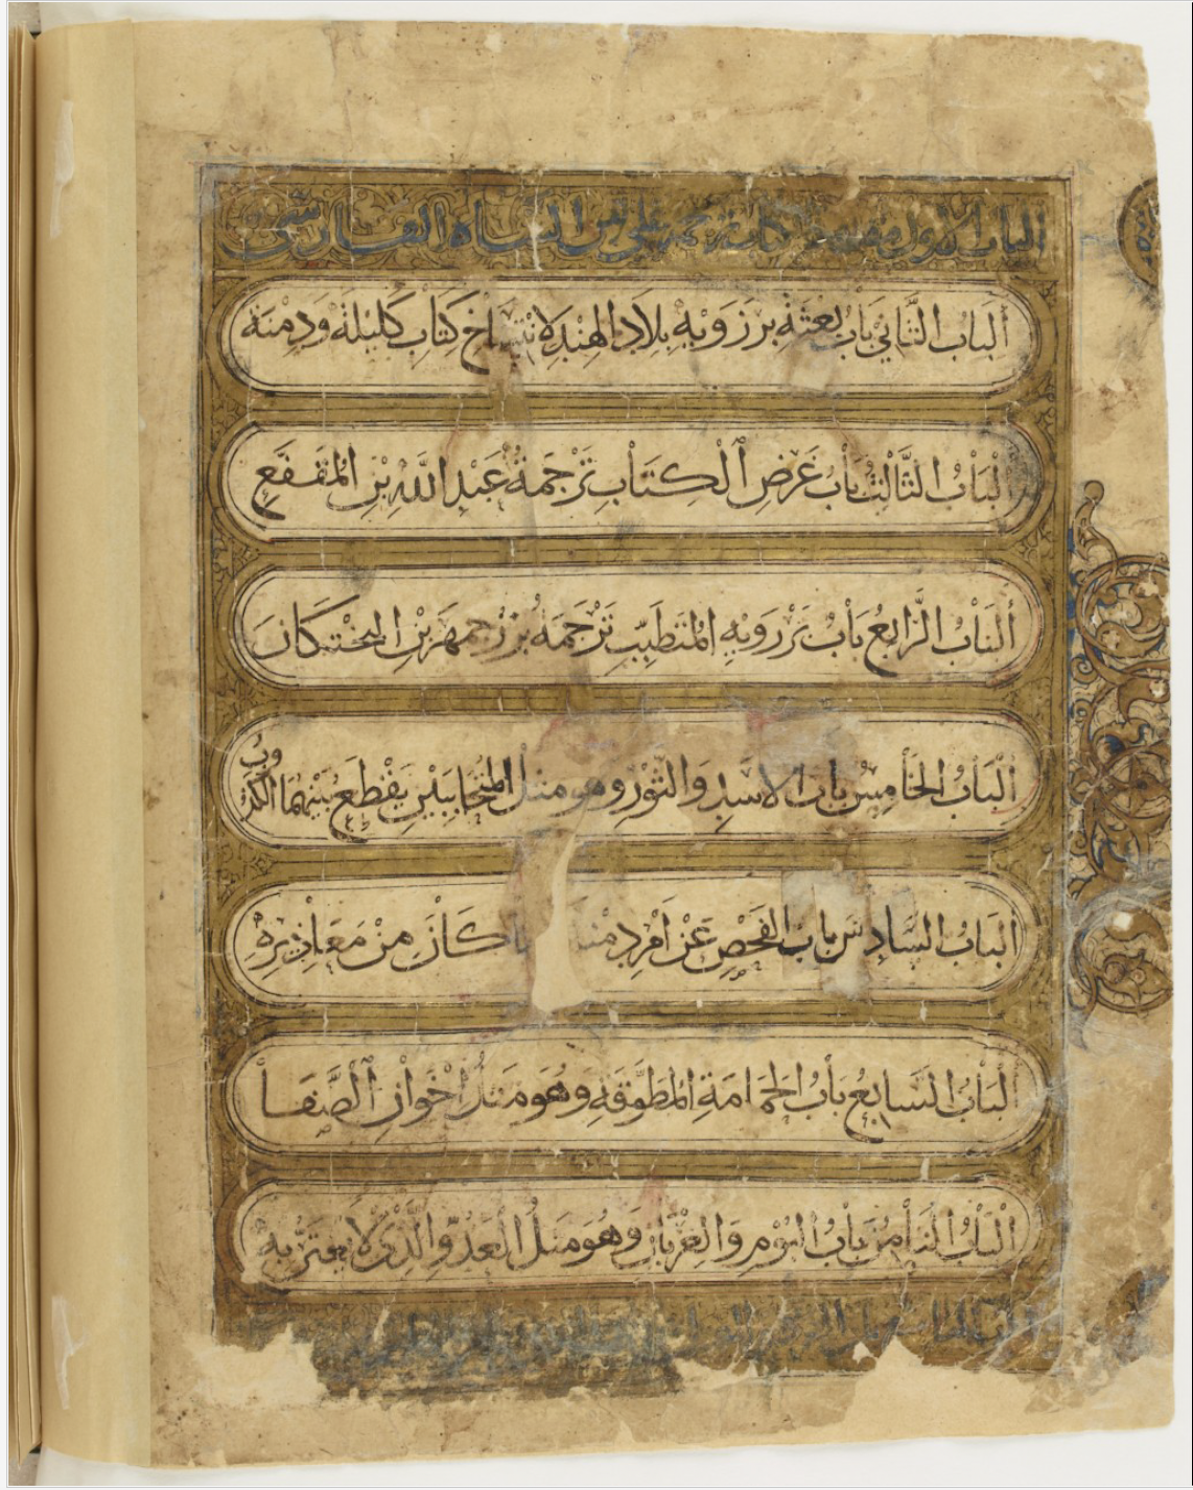 الباب الاول مقدمة الكتاب ترجمة علي بن الشاه الفارسي
أَلْبَابُ الثَّانِي بَابُ بِعْثَةِ بَرْزَوَيْهِ بِلَادَ الهِنْدِ لِانْتِسَاخِ كِتَابِ كَلِيْلَةَ وَدِمْنَة
أَلْبَابُ الثَّالِثُ بَابُ غَرَضِ الْكِتَابِ تَرْجَمَةُ عَبْدِ اللَّهِ بْنِ الْمُقَفَّعِ
أَلْبَابُ الرَّابِعُ بَابُ بَرْزَوَيْهِ الْمُتَطَبِّبِ تَرْجَمَةُ بُزُرْجِمِهْرَ بْنِ البَخْتَكَانَ
أَلْبَابُ الْخَامِسُ بَابُ الاسَدِ وَالثَّوْرِ وهو مثل الْمُتَحَابَّيْنِ يَقْطَعُ بَيْنَهُمَا الْكَذُوبُ
أَلْبَابُ السَّادِسُ بَابُ الفَحْصِ عَنْ أَمْرِ دِمْنَة كَانَ مِنْ مَعَاذِيرِهِ
أَلْبَابُ السَّابِعُ بَابُ الحَمَامَةِ الْمُطَوَّقَةِ وَهُوَ مَثَلُ إِخْوَانِ الصَّفَا
أَلْبَابُ الثَّامِنُ بَابُ الْبُوْمِ وَالْغِرْبَانِ وَهُوَ مَثَلُ الْعَدُوِّ الَّذِي لَا يُغْتَرُّ بِهِ